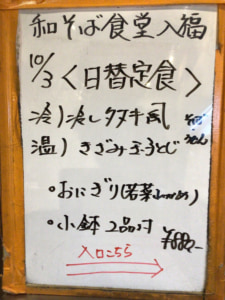 和そば食堂入福
10/3 <日替定食>
冷)冷しタヌキ風 そば うどん
温)きざみ玉子とじ
・おにぎり(若菜わかめ)
・小鉢2品付
入口こちら